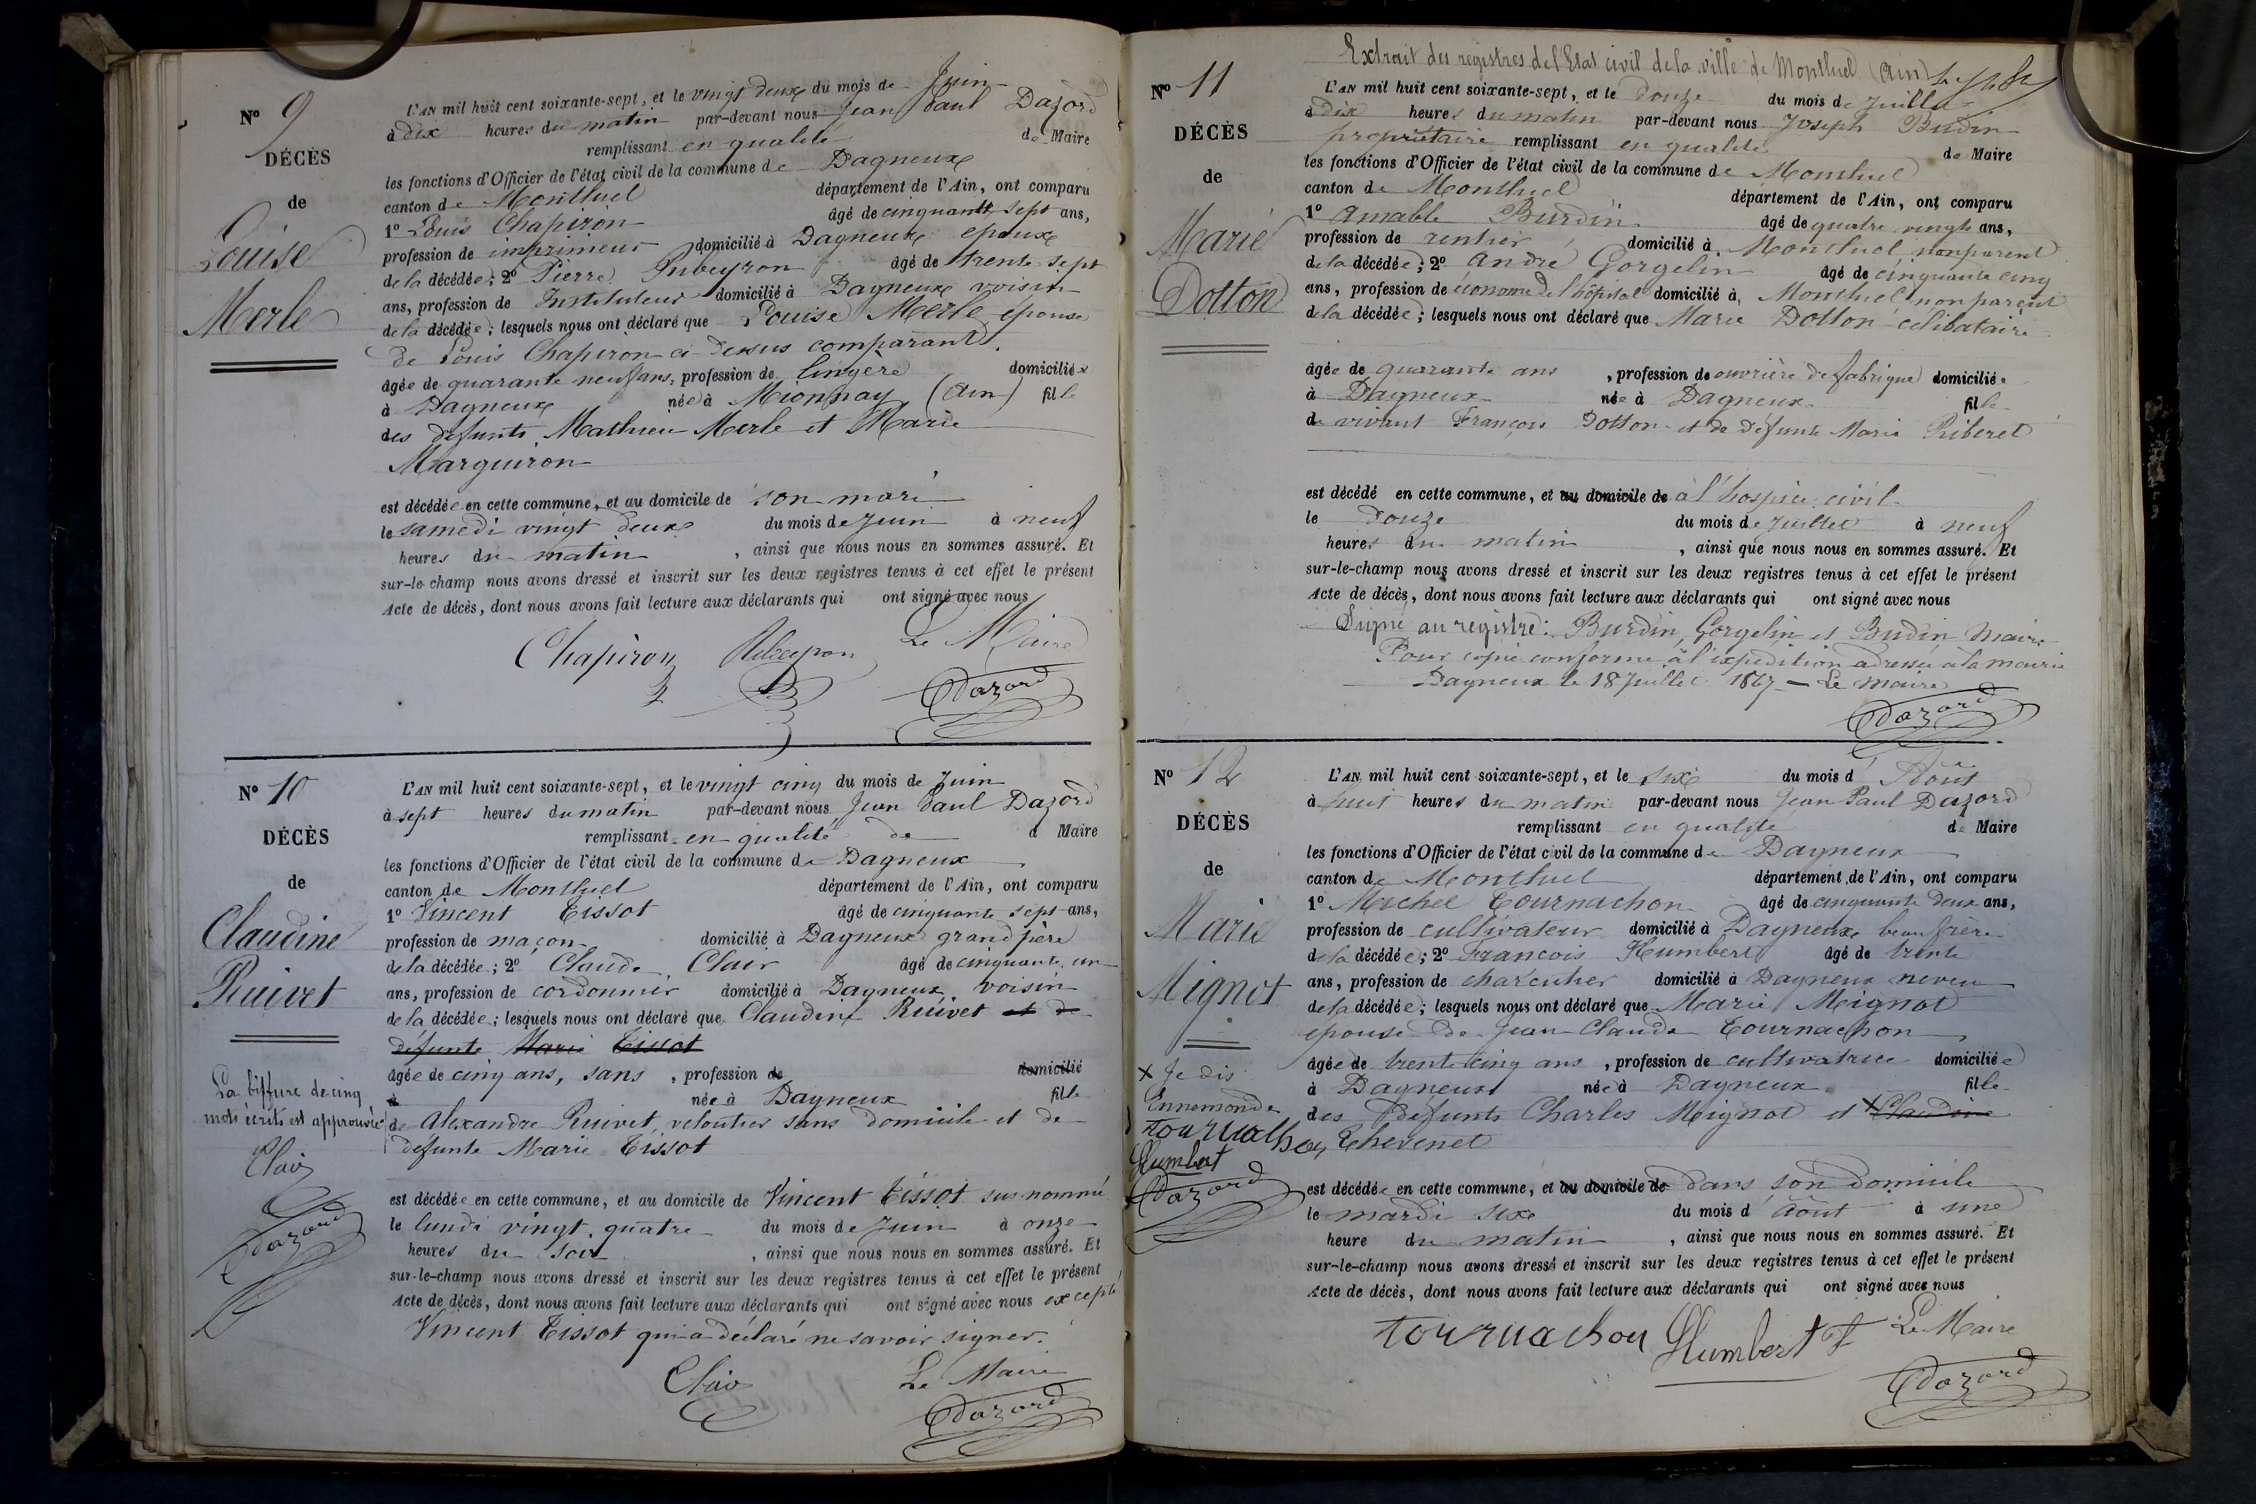 N° 9
DÉCÈS
de
Louise
Merle
L'AN mil huit cent soixante-sept, et le vingt deux du mois de Juin
à dix heures du matin par-devant nous Jean Paul Dazord
remplissant en qualité de Maire
les fonctions d'Officier de l'état civil de la commune de Dagneux
canton de Montluel département de l'Ain, ont comparu
1° Louis Chapiron âgé de cinquante sept ans,
profession de imprimeur domicilié à Dagneux epoux
de la décédée; 2° Pierre âgé de trente sept
ans, profession de Instituteur domicilié à Dagneux voisin
de la décédée; lesquels nous ont déclaré que Louise Merle épouse
de Louis Chapiron ci-dessus comparant
âgée de quarante neuf ans, profession de lingère domiciliée
à Dagneux née à Mionnay (Ain) fille
des défunts Mathieu Merle et Marie
Marguiron
est décédée en cette commune, et au domicile de son mari
le samedi vingt deux du mois de Juin à neuf
heures du matin, ainsi que nous nous en sommes assuré. Et
sur-le-champ nous avons dressé et inscrit sur les deux registres tenus à cet effet le présent
Acte de décès, dont nous avons fait lecture aux déclarants qui ont signé avec nous
Chapiron Le Maire
Dazord
N° 10
DÉCÈS
de
Claudine
Ruivet
La biffure de cinq
mots écrits est approuvée
Clair
Dazord
L'AN mil huit cent soixante-sept, et le vingt cinq du mois de Juin
à sept heures du matin par-devant nous Jean Paul Dazord
remplissant en qualité de d Maire
les fonctions d'Officier de l'état civil de la commune de Dagneux
canton de Montluel département de l'Ain, ont comparu
1° Vincent Tissot âgé de cinquante sept ans,
profession de maçon domicilié à Dagneux grand père
de la décédée; 2° Claude Clair âgé de cinquante un
ans, profession de cordonnier domicilié à Dagneux voisin
de la décédée; lesquels nous ont déclaré que Claudine Ruivet et de
défunte Marie Tissot
âgée de cinq ans, sans, profession de domicilié
à née à Dagneux fille
de Alexandre Ruivet, veloutier sans domicile et de
défunte Marie Tissot
est décédée en cette commune, et au domicile de Vincent Tissot susnommé
le lundi vingt quatre du mois de Juin à onze
heures du soir, ainsi que nous nous en sommes assuré. Et
sur-le-champ nous avons dressé et inscrit sur les deux registres tenus à cet effet le présent
Acte de décès, dont nous avons fait lecture aux déclarants qui ont signé avec nous excepté
Vincent Tissot qui a déclaré ne savoir signer.
Clair Le Maire
Dazord
Extrait des registres de l'Etat civil de la ville de Montluel (Ain)
N° 11
DÉCÈS
de
Marie
Dotton
L'AN mil huit cent soixante-sept, et le douze du mois de Juillet
à dix heures du matin par-devant nous Joseph Budin
propriétaire remplissant en qualité de Maire
les fonctions d'Officier de l'état civil de la commune de Montluel
canton de Montluel département de l'Ain, ont comparu
1° Amable Burdin âgé de quatre vingts ans,
profession de rentier, domicilié à Montluel non parent
de la décédée; 2° André Gorgelin âgé de cinquante cinq
ans, profession de économe de l'hôpital domicilié à Montluel non parent
de la décédée; lesquels nous ont déclaré que Marie Dotton célibataire
âgée de quarante ans, profession de ouvrière de fabrique domiciliée
à Dagneux née à Dagneux fille
de vivant François Dotton et de défunte Marie Riberet
est décédé en cette commune, et au domicile de à l'hospice civil
le douze du mois de Juillet à neuf
heures du matin, ainsi que nous nous en sommes assuré. Et
sur-le-champ nous avons dressé et inscrit sur les deux registres tenus à cet effet le présent
Acte de décès, dont nous avons fait lecture aux déclarants qui ont signé avec nous
Signé au registre: Burdin, Gorgelin et Budin Maire
Pour copie conforme à l'expédition adressée à la mairie
Dagneux le 18 Juillet 1867 - Le maire
Dazord
N° 12
DÉCÈS
de
Marie
Mignot
x Je dis
Ennemonde
Tournachon
Humbert
Dazord
L'AN mil huit cent soixante-sept, et le six du mois d Août
à huit heures du matin par-devant nous Jean Paul Dazord
remplissant en qualité de Maire
les fonctions d'Officier de l'état civil de la commune de Dagneux
canton de Montluel département de l'Ain, ont comparu
1° Michel Tournachon âgé de cinquante deux ans,
profession de cultivateur domicilié à Dagneux beau frère
de la décédée; 2° François Humbert âgé de trente
ans, profession de charcutier domicilié à Dagneux neveu
de la décédée; lesquels nous ont déclaré que Marie Mignot
épouse de Jean Claude Tournachon
âgée de trente cinq ans, profession de cultivatrice domiciliée
à Dagneux née à Dagneux fille
des défunts Charles Mignot et x Claudine
Thevenet
est décédée en cette commune, et au domicile de dans son domicile
le mardi six du mois d août à une
heure du matin, ainsi que nous nous en sommes assuré. Et
sur-le-champ nous avons dressé et inscrit sur les deux registres tenus à cet effet le présent
Acte de décès, dont nous avons fait lecture aux déclarants qui ont signé avec nous
Tournachon Humbert F Le Maire
Dazord